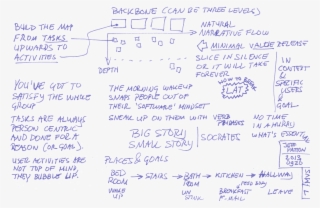 BACKBONE (CAN BE THREE LEVELS)
BUILD THE MAP
FROM TASKS
UPWARDS TO
ACTIVITIES
NATURAL
NARRATIVE FLOW
MINIMAL VALUE RELEASE
SLICE IN SILENCE
OR IT WILL TAKE
FOREVER
DEPTH
IN
CONTEXT
&
SPECIFIC
USERS
&
GOAL
YOU'VE GOT TO
SATISFY THE WHOLE
GROUP
THE MORNING WAKEUP
SNAPS PEOPLE OUT OF
THEIR 'SOFTWARE' MINDSET
LATE
SNEAK UP ON THEM WITH VERB
PHRASES
TASKS ARE ALWAYS
PERSON CENTRIC
AND DONE FOR A
REASON (OR GOAL).
BIG STORY
SMALL STORY
SOCRATES
NO TIME
IN A HURRY
WHAT'S ESSENTIAL
USER ACTIVITIES ARE
NOT TOP OF MIND,
THEY BUBBLE UP.
PLACES & GOALS
BED
ROOM
WAKE
UP
STAIRS
BATH
ROOM
KITCHEN
HALLWAY
FEED DOG
BREAKFAST
E-MAIL
LEAVE
JEFF
PATTON
2013